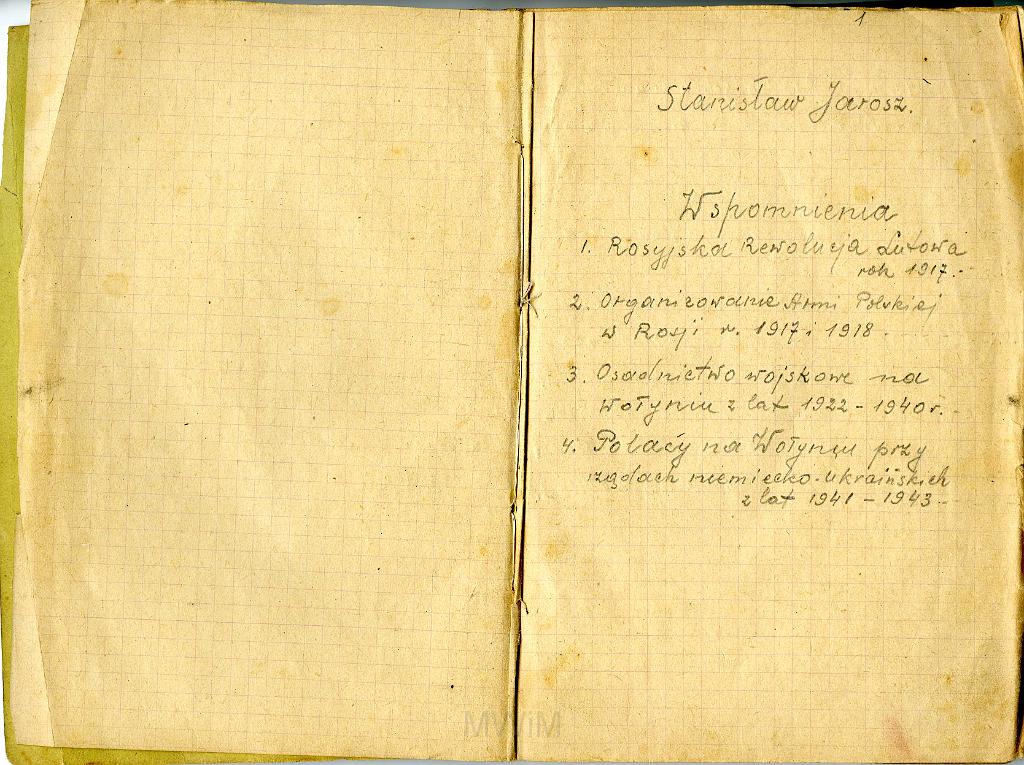 1
Stanisław Jarosz.
Wspomnienia
1. Rosyjska Rewolucja Lutowa
rok 1917.-
2. Organizowanie Armi Polskiej
w Rosji r. 1917 i 1918.
3. Osadnictwo wojskowe na
Wołyniu z lat 1922 - 1940r.-
4. Polacy na Wołyniu przy
rządach niemiecko-ukraińskich
z lat 1941 - 1943.-
MWiM